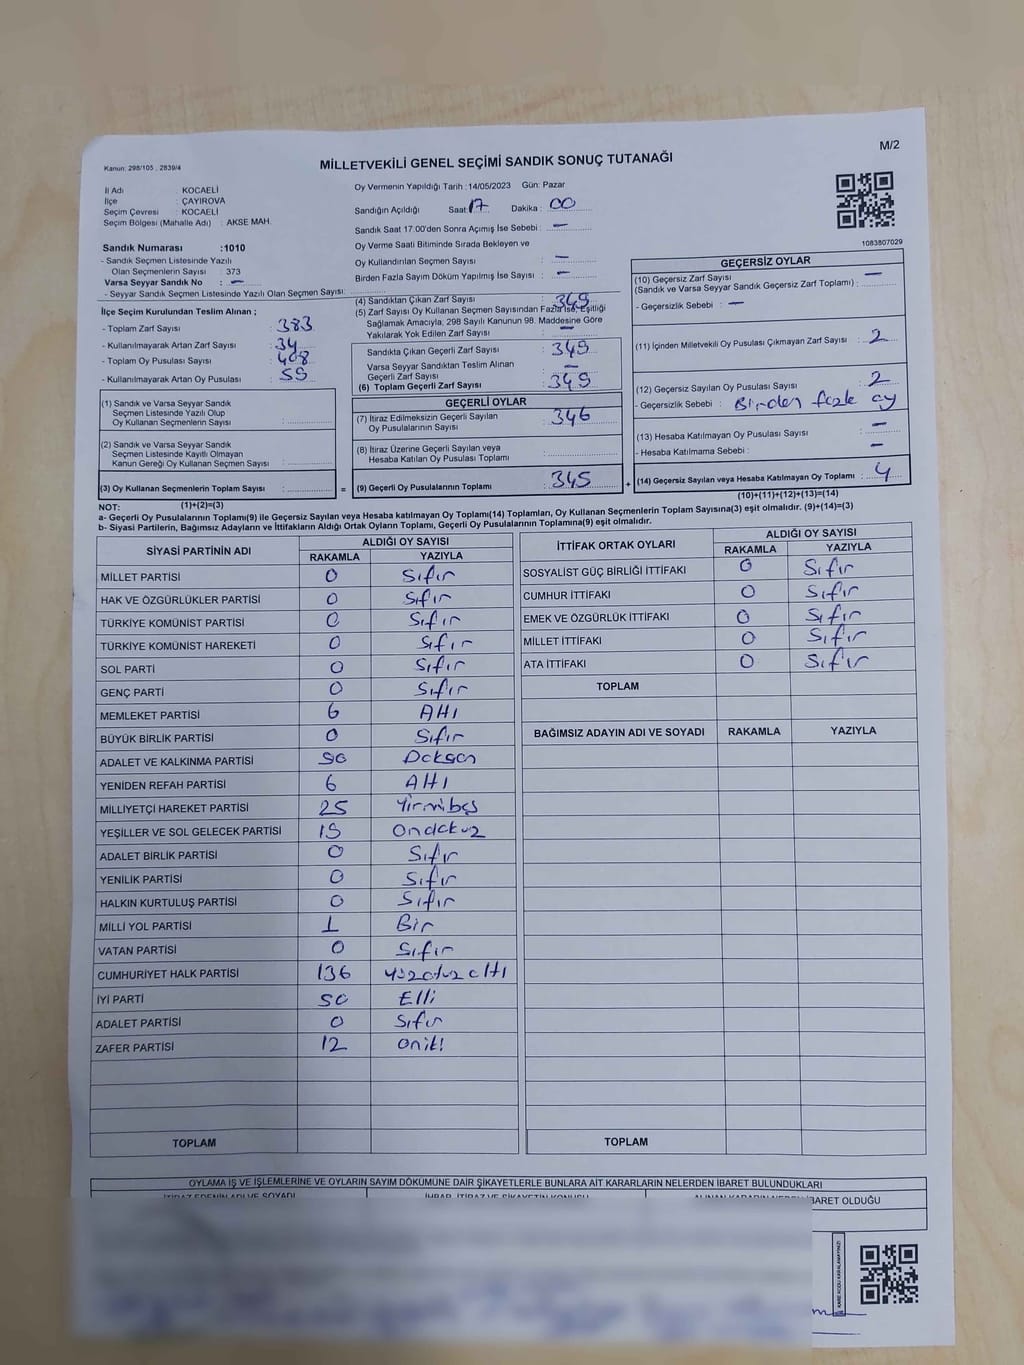 M/2
Kanun: 298/105 , 2839/4
MİLLETVEKİLİ GENEL SEÇİMİ SANDIK SONUÇ TUTANAĞI
İl Adı : KOCAELİ
İlçe : ÇAYIROVA
Seçim Çevresi : KOCAELİ
Seçim Bölgesi (Mahalle Adı) : AKSE MAH.
Sandık Numarası :1010
- Sandık Seçmen Listesinde Yazılı
Olan Seçmenlerin Sayısı : 373
Varsa Seyyar Sandık No : -
- Seyyar Sandık Seçmen Listesinde Yazılı Olan Seçmen Sayısı:
İlçe Seçim Kurulundan Teslim Alınan ;
- Toplam Zarf Sayısı : 383
- Kullanılmayarak Artan Zarf Sayısı : 34
- Toplam Oy Pusulası Sayısı : 408
- Kullanılmayarak Artan Oy Pusulası : 59
(1) Sandık ve Varsa Seyyar Sandık
Seçmen Listesinde Yazılı Olup
Oy Kullanan Seçmenlerin Sayısı :
(2) Sandık ve Varsa Seyyar Sandık
Seçmen Listesinde Kayıtlı Olmayan
Kanun Gereği Oy Kullanan Seçmen Sayısı :
(3) Oy Kullanan Seçmenlerin Toplam Sayısı : =
Oy Vermenin Yapıldığı Tarih :14/05/2023 Gün: Pazar
Sandığın Açıldığı Saat: 17 Dakika : 00
Sandık Saat 17.00'den Sonra Açımış İse Sebebi : -
Oy Verme Saati Bitiminde Sırada Bekleyen ve
Oy Kullandırılan Seçmen Sayısı : -
Birden Fazla Sayım Döküm Yapılmış İse Sayısı : -
(4) Sandıktan Çıkan Zarf Sayısı : 349
(5) Zarf Sayısı Oy Kullanan Seçmen Sayısından Fazla İse, Eşitliği
Sağlamak Amacıyla, 298 Sayılı Kanunun 98. Maddesine Göre
Yakılarak Yok Edilen Zarf Sayısı : -
Sandıkta Çıkan Geçerli Zarf Sayısı : 349
Varsa Seyyar Sandıktan Teslim Alınan
Geçerli Zarf Sayısı : -
(6) Toplam Geçerli Zarf Sayısı : 349
GEÇERLİ OYLAR
(7) İtiraz Edilmeksizin Geçerli Sayılan
Oy Pusulalarının Sayısı : 346
(8) İtiraz Üzerine Geçerli Sayılan veya
Hesaba Katılan Oy Pusulası Toplamı :
(9) Geçerli Oy Pusulalarının Toplamı : 345 +
1083807029
GEÇERSİZ OYLAR
(10) Geçersiz Zarf Sayısı
(Sandık ve Varsa Seyyar Sandık Geçersiz Zarf Toplamı) : -
- Geçersizlik Sebebi : -
(11) İçinden Milletvekili Oy Pusulası Çıkmayan Zarf Sayısı : 2
(12) Geçersiz Sayılan Oy Pusulası Sayısı : 2
- Geçersizlik Sebebi : Birden fazla oy
(13) Hesaba Katılmayan Oy Pusulası Sayısı : -
- Hesaba Katılmama Sebebi : -
(14) Geçersiz Sayılan veya Hesaba Katılmayan Oy Toplamı : 4
NOT: (1)+(2)=(3) (10)+(11)+(12)+(13)=(14)
a- Geçerli Oy Pusulalarının Toplamı(9) ile Geçersiz Sayılan veya Hesaba katılmayan Oy Toplamı(14) Toplamları, Oy Kullanan Seçmenlerin Toplam Sayısına(3) eşit olmalıdır. (9)+(14)=(3)
b- Siyasi Partilerin, Bağımsız Adayların ve İttifakların Aldığı Ortak Oyların Toplamı, Geçerli Oy Pusulalarının Toplamına(9) eşit olmalıdır.
SİYASİ PARTİNİN ADI ALDIĞI OY SAYISI
RAKAMLA YAZIYLA
MİLLET PARTİSİ 0 Sıfır
HAK VE ÖZGÜRLÜKLER PARTİSİ 0 Sıfır
TÜRKİYE KOMÜNİST PARTİSİ 0 Sıfır
TÜRKİYE KOMÜNİST HAREKETİ 0 Sıfır
SOL PARTİ 0 Sıfır
GENÇ PARTİ 0 Sıfır
MEMLEKET PARTİSİ 6 Altı
BÜYÜK BİRLİK PARTİSİ 0 Sıfır
ADALET VE KALKINMA PARTİSİ 90 Doksan
YENİDEN REFAH PARTİSİ 6 Altı
MİLLİYETÇİ HAREKET PARTİSİ 25 Yirmibeş
YEŞİLLER VE SOL GELECEK PARTİSİ 19 Ondokuz
ADALET BİRLİK PARTİSİ 0 Sıfır
YENİLİK PARTİSİ 0 Sıfır
HALKIN KURTULUŞ PARTİSİ 0 Sıfır
MİLLİ YOL PARTİSİ 1 Bir
VATAN PARTİSİ 0 Sıfır
CUMHURİYET HALK PARTİSİ 136 Yüzotuzaltı
İYİ PARTİ 50 Elli
ADALET PARTİSİ 0 Sıfır
ZAFER PARTİSİ 12 Oniki
TOPLAM
İTTİFAK ORTAK OYLARI ALDIĞI OY SAYISI
RAKAMLA YAZIYLA
SOSYALİST GÜÇ BİRLİĞİ İTTİFAKI 0 Sıfır
CUMHUR İTTİFAKI 0 Sıfır
EMEK VE ÖZGÜRLÜK İTTİFAKI 0 Sıfır
MİLLET İTTİFAKI 0 Sıfır
ATA İTTİFAKI 0 Sıfır
TOPLAM
BAĞIMSIZ ADAYIN ADI VE SOYADI RAKAMLA YAZIYLA
TOPLAM
OYLAMA İŞ VE İŞLEMLERİNE VE OYLARIN SAYIM DÖKÜMÜNE DAİR ŞİKAYETLERLE BUNLARA AİT KARARLARIN NELERDEN İBARET BULUNDUKLARI
İTİRAZ EDENİN ADI VE SOYADI İHBAR, İTİRAZ VE ŞİKAYETİN KONUSU ALINAN KARARIN NEDEN İBARET OLDUĞU